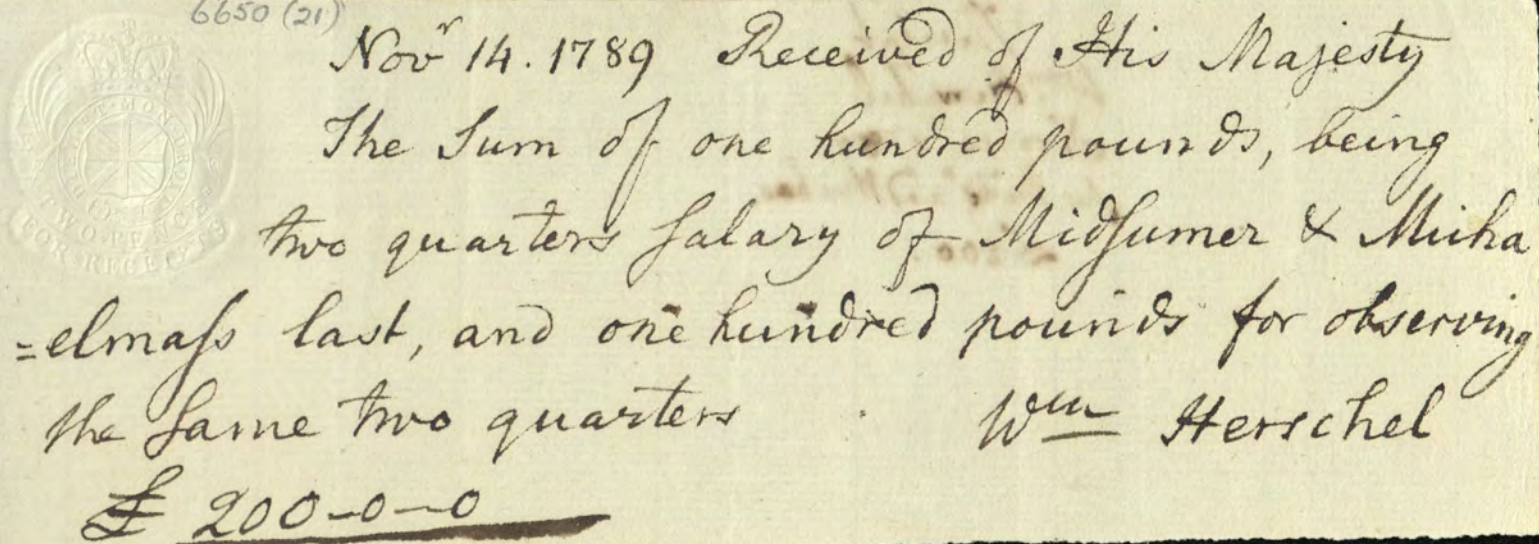 6650 (21)
Novr 14. 1789 Received of His Majesty
The Sum of one hundred pounds, being
two quarters ſalary of Midſumer & Micha
=elmaſs last, and one hundred pounds for observing
the ſame two quarters Wm Herschel
£ 200-0-0
TWO PENCE
FOR RECEIPTS